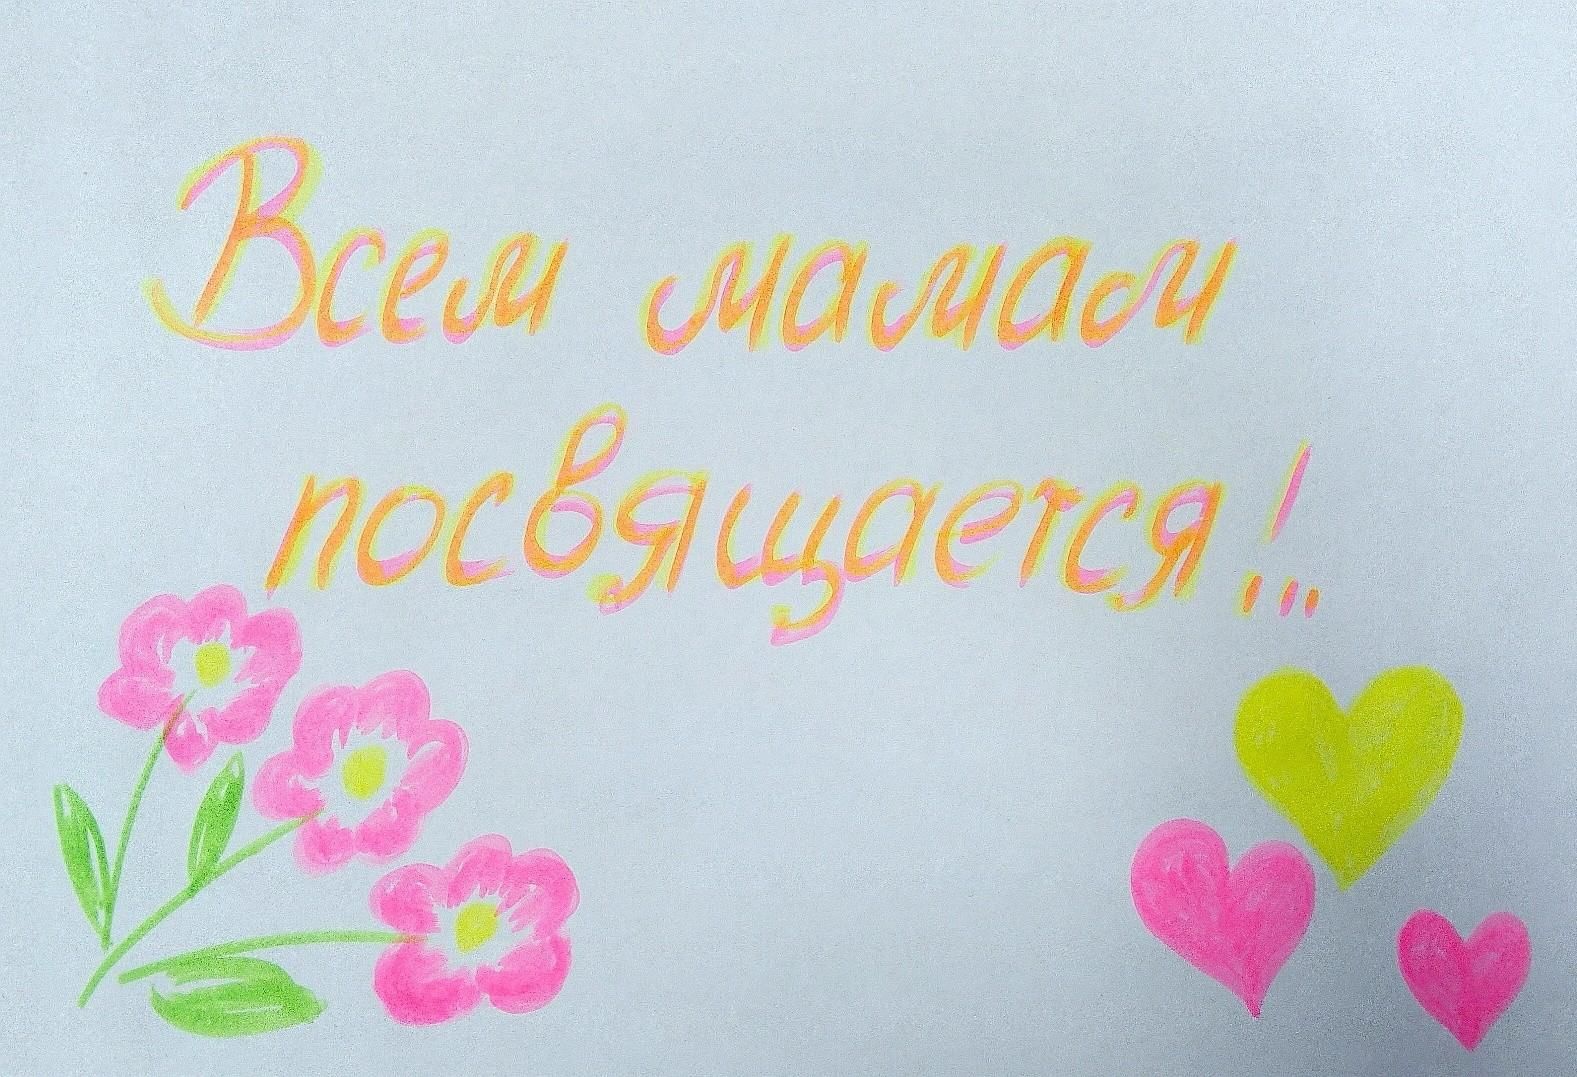 Всем мамам
посвящается!...